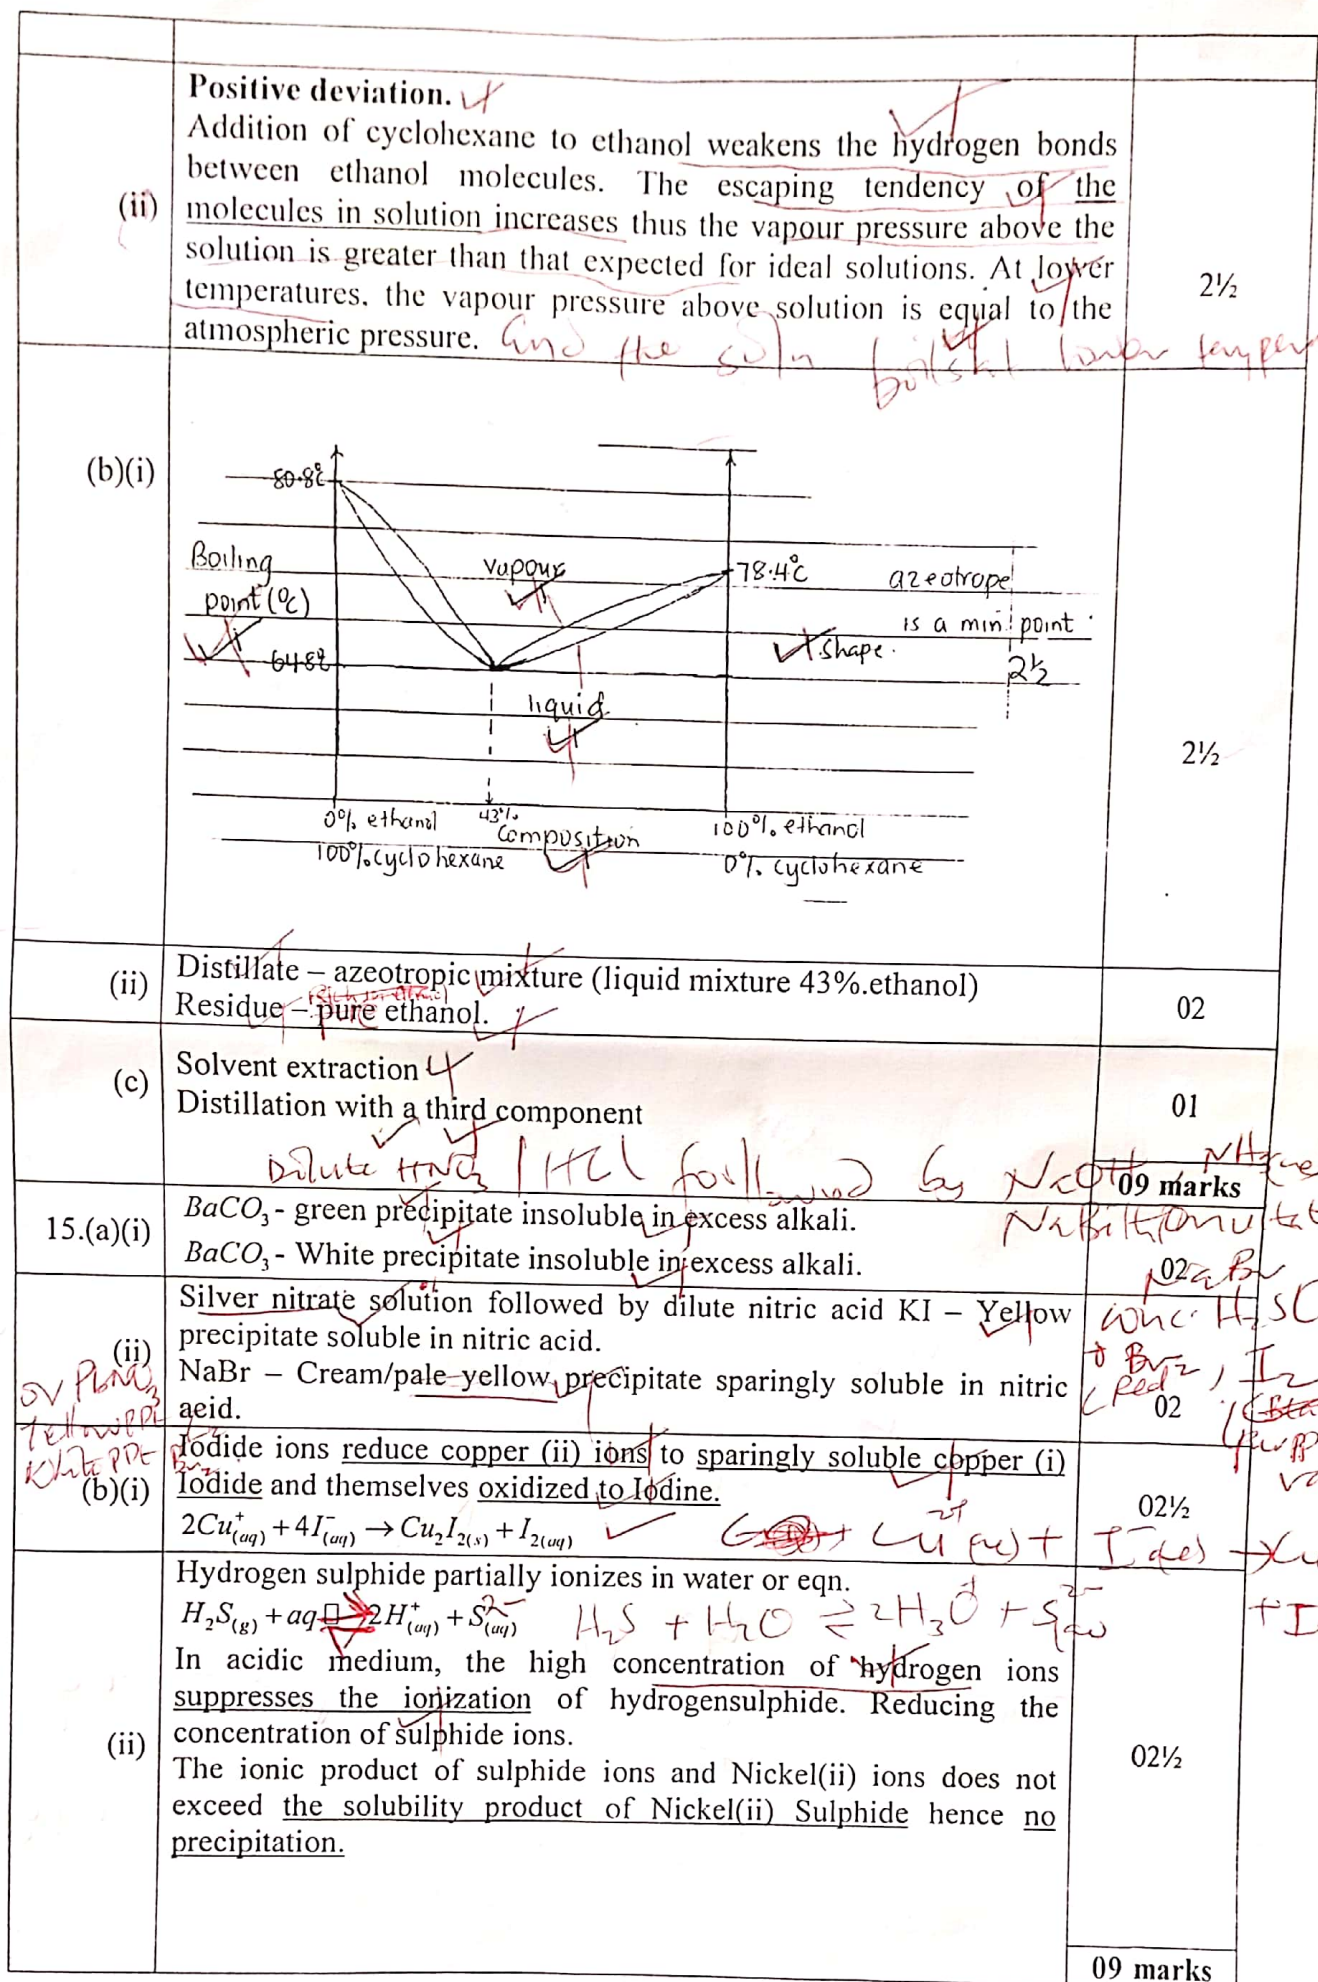 Positive deviation.
Addition of cyclohexane to ethanol weakens the hydrogen bonds
between ethanol molecules. The escaping tendency of the
(ii) molecules in solution increases thus the vapour pressure above the
solution is greater than that expected for ideal solutions. At lower
temperatures, the vapour pressure above solution is equal to the
2½
atmospheric pressure. and the soln boils at lower temper
(b)(i)
80.8°C
Boiling
point (°C)
vapour
78.4°C
azeotrope
is a min. point
shape.
64.8°C
2½
liquid
2½
0% ethanol 43% 100% ethanol
composition
100% cyclohexane 0% cyclohexane
(ii) Distillate – azeotropic mixture (liquid mixture 43%.ethanol)
Residue – pure ethanol.
02
(c) Solvent extraction
Distillation with a third component
01
Dilute HNO3 / HCl followed by NaOH
09 marks
15.(a)(i) BaCO3 - green precipitate insoluble in excess alkali.
BaCO3 - White precipitate insoluble in excess alkali.
02
NaBr
(ii) Silver nitrate solution followed by dilute nitric acid KI – Yellow
conc. H2SO
precipitate soluble in nitric acid.
Br2, I2
NaBr – Cream/pale yellow precipitate sparingly soluble in nitric
(Red
acid.
02
or PbNO3
Yellow PPt
White PPt Br2
(b)(i) Iodide ions reduce copper (ii) ions to sparingly soluble copper (i)
Iodide and themselves oxidized to Iodine.
02½
2Cu+(aq) + 4I-(aq) → Cu2I2(s) + I2(aq)
Cu2+(aq) + I-(aq) → Cu
+ I
(ii) Hydrogen sulphide partially ionizes in water or eqn.
H2S(g) + aq ⇌ 2H+(aq) + S2-(aq) H2S + H2O ⇌ 2H3O+ + S2-(aq)
In acidic medium, the high concentration of hydrogen ions
suppresses the ionization of hydrogensulphide. Reducing the
concentration of sulphide ions.
02½
The ionic product of sulphide ions and Nickel(ii) ions does not
exceed the solubility product of Nickel(ii) Sulphide hence no
precipitation.
09 marks